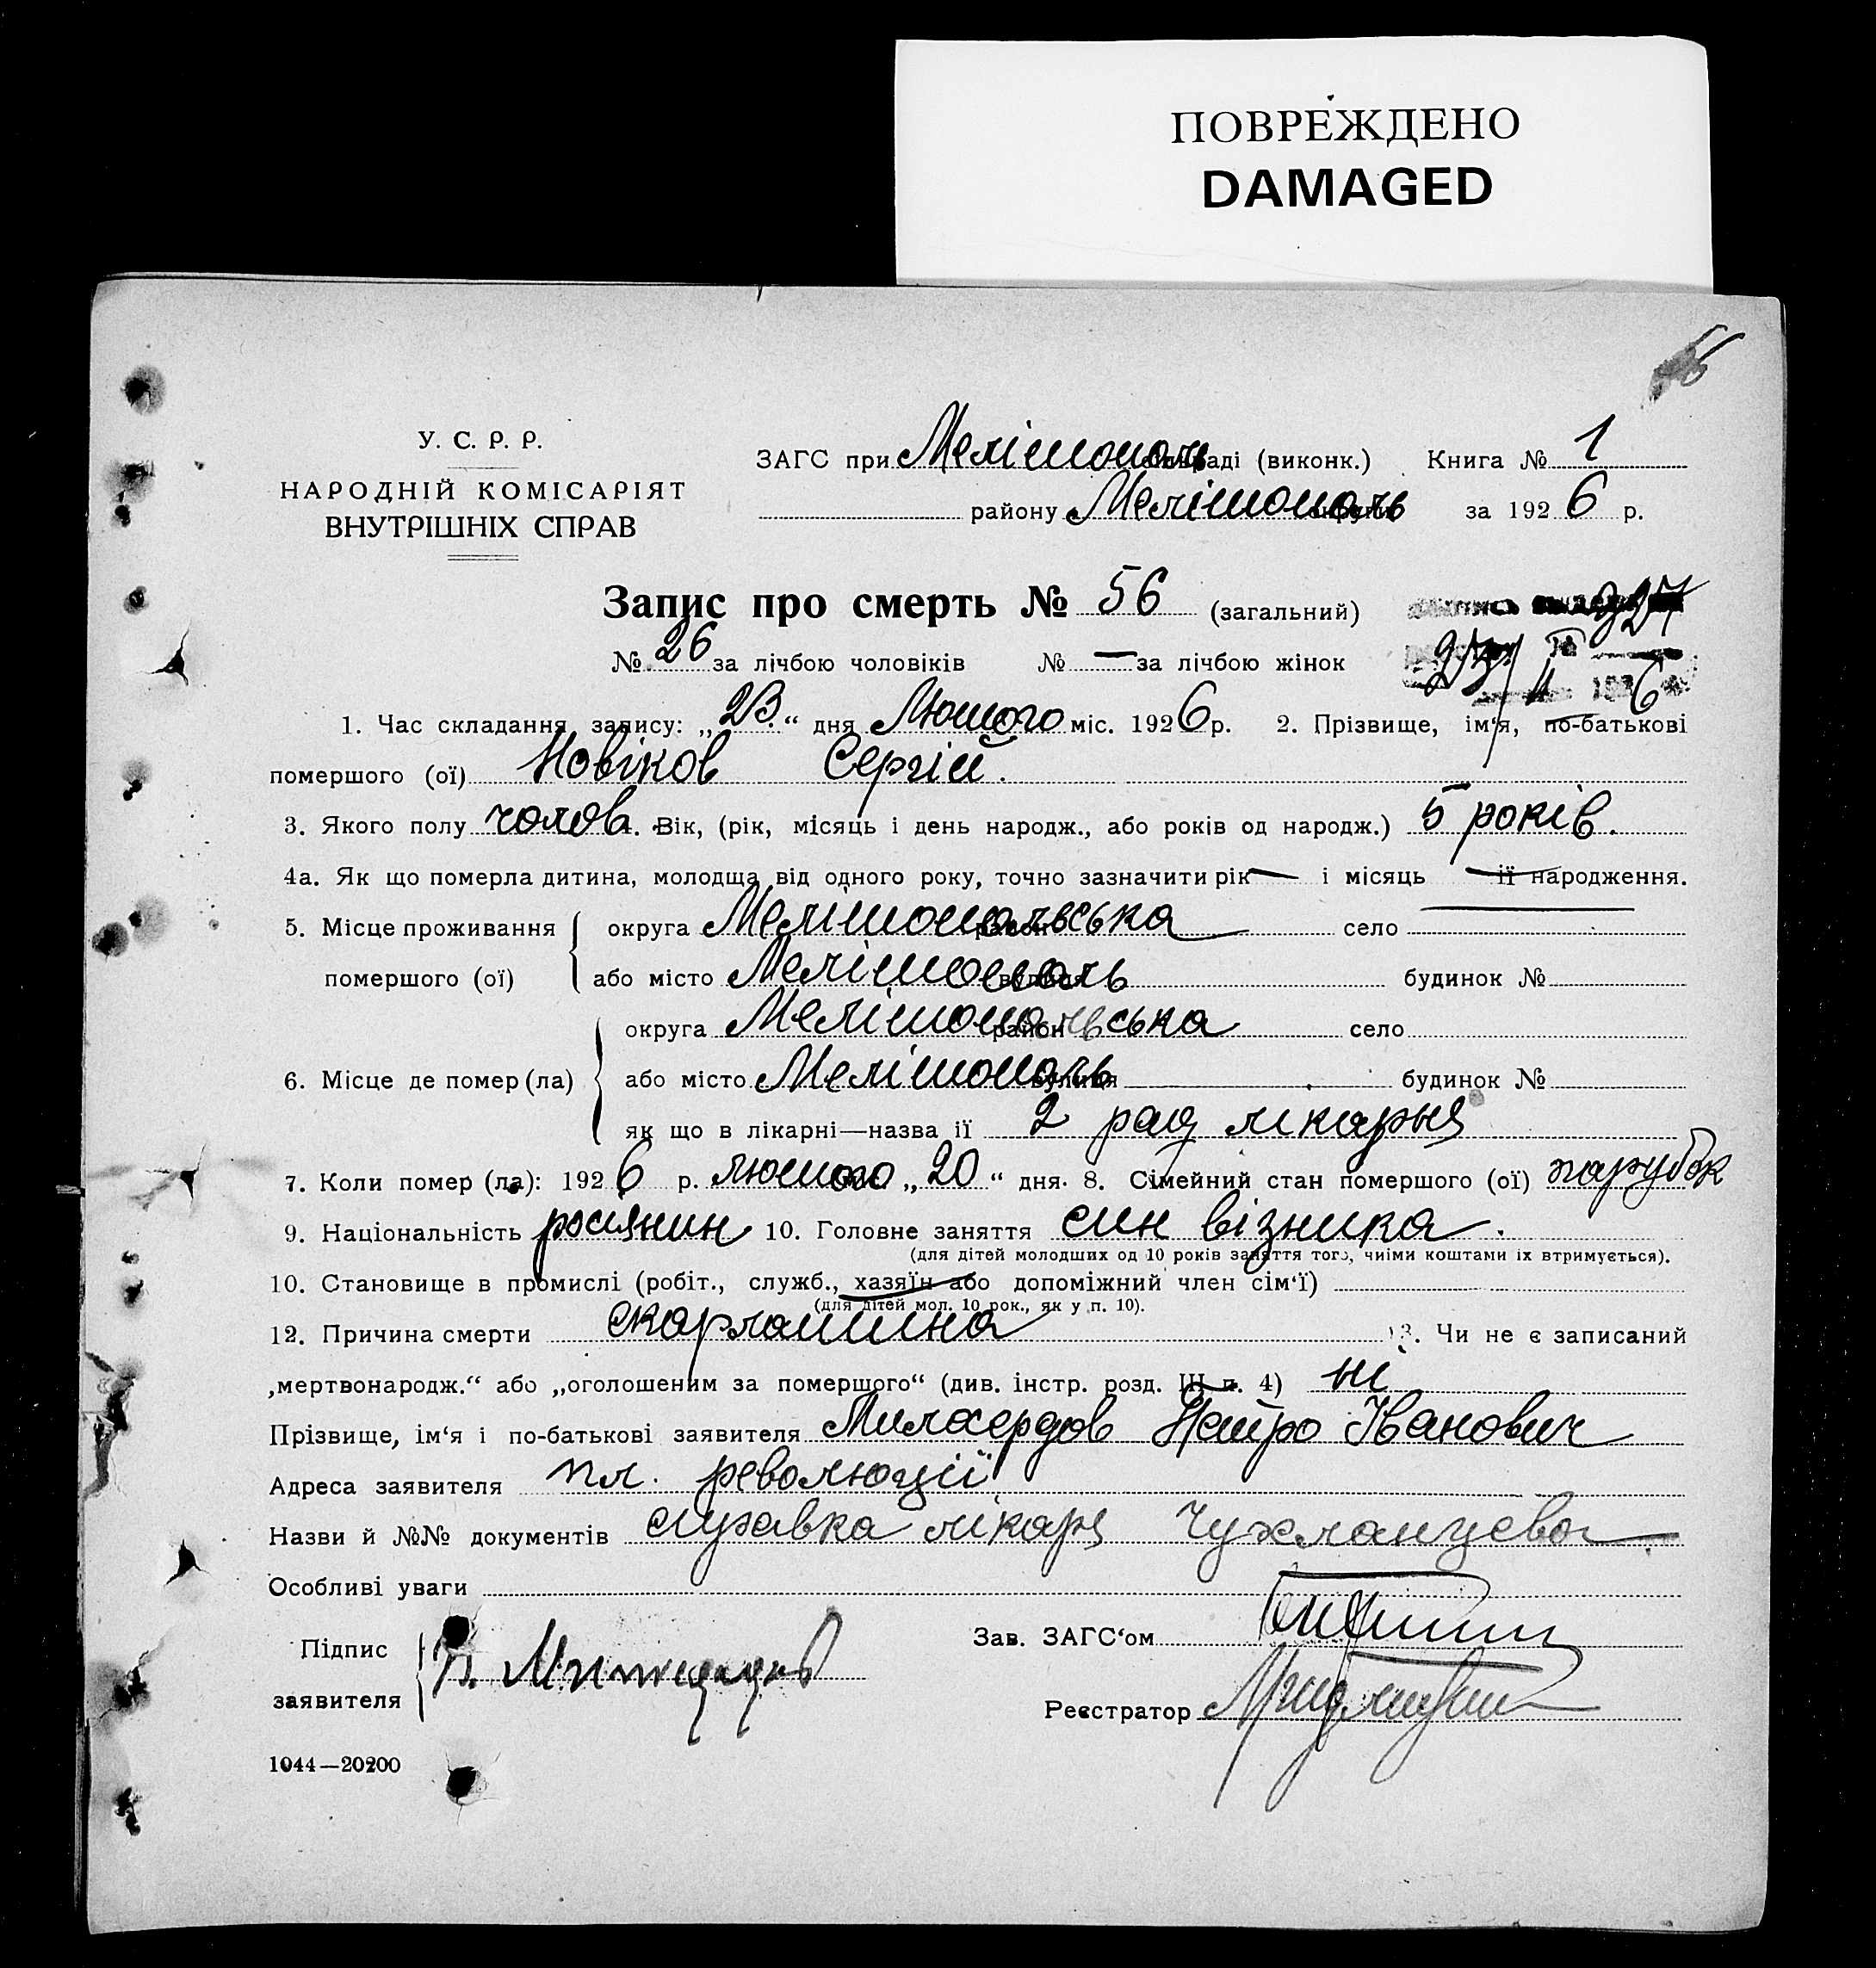 ПОВРЕЖДЕНО
DAMAGED
56
У. С. Р. Р.
НАРОДНІЙ КОМІСАРІЯТ
ВНУТРІШНІХ СПРАВ
ЗАГС при Мелітополь раді (виконк.) Книга № 1
району Мелітополь округи за 1926 р.
Запис про смерть № 56 (загальний)
№ 26 за лічбою чоловіків № — за лічбою жінок
1. Час складання запису: „23“ дня Лютого міс. 1926 р. 2. Прізвище, ім‘я, по-батькові
помершого (ої) Новіков Сергій.
3. Якого полу чолов. 4. Вік, (рік, місяць і день народж., або років од народж.) 5 років.
4а. Як що померла дитина, молодща від одного року, точно зазначити рік — і місяць — її народження.
5. Місце проживання помершого (ої) округа Мелітопольська район село —
або місто Мелітополь вулиця будинок №
6. Місце де помер (ла) округа Мелітопольська район село
або місто Мелітополь вулиця будинок №
як що в лікарні—назва її 2 рад лікарня
7. Коли помер (ла): 1926 р. лютого „20“ дня. 8. Сімейний стан помершого (ої) парубок
9. Національність росіянин 10. Головне заняття син візника.
(для дітей молодших од 10 років заняття того, чиїми коштами їх втримується).
10. Становище в промислі (робіт., служб., хазяїн або допоміжний член сім‘ї)
(для дітей мол. 10 рок., як у п. 10).
12. Причина смерти скарлатина 13. Чи не є записаний
„мертвонародж.“ або „оголошеним за помершого“ (див. інстр. розд. III п. 4) ні
Прізвище, ім‘я і по-батькові заявителя Милосердов Петро Іванович
Адреса заявителя пл. революції
Назви й №№ документів справка лікаря Чухланцева
Особливі уваги
Підпис заявителя П. Милосердов
Зав. ЗАГС‘ом
Реєстратор
1044—20200